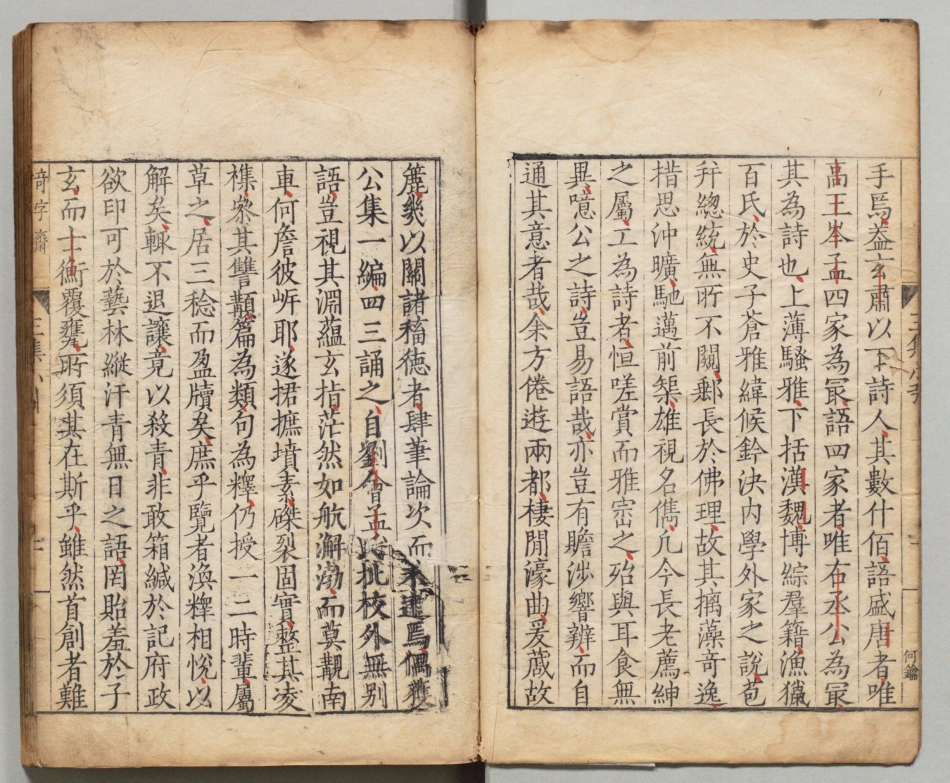 手焉蓋玄肅以下詩人其數什佰語盛唐者唯
高王岑孟四家為㝡語四家者唯右丞公為㝡
其為詩也上薄騷雅下括漢魏博綜羣籍漁獵
百氏於史子蒼雅緯候鈐決內學外家之說苞
并總統無所不闚郵長於佛理故其摛藻奇逸
措思沖曠馳邁前榘雄視名儁凡今長老薦紳
之屬工為詩者恒嗟賞而雅宻之殆與耳食無
異噫公之詩豈易語哉亦豈有贍涉響辨而自
通其意者哉余方倦遊兩都棲閒濠曲爰蒇故
簏幾以關諸稸德者肆筆論次而未遑焉偶獲
公集一編四三誦之自劉會孟批校外無别
語豈視其淵蘊玄指茫然如航澥渤而莫覩南
車何詹彼岸耶遂捃摭墳素磔裂固實整其凌
襍㕘其讐顛篇為類句為釋仍授一二時輩屬
草之居三稔而盈牘矣庶乎覽者渙釋相悅以
解矣輙不退讓竟以殺青非敢箱緘於記府政
欲印可於藝林縱汗青無日之語罔貽羞於子
玄而士衡覆甕所須其在斯乎雖然首創者難
奇字齋
三集
何鑰